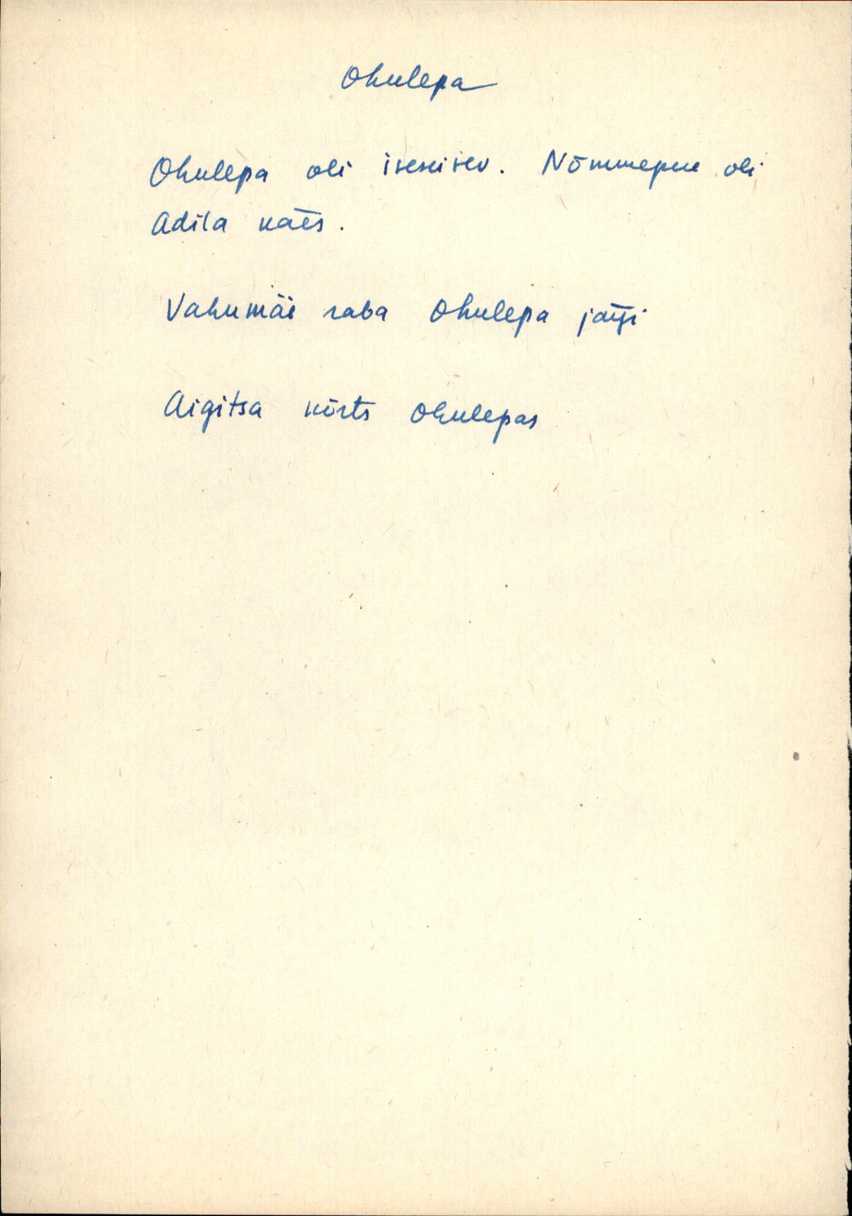 Ohulepa
Ohulepa oli iseseisev. Nõmmepere oli
Adila käes.
Vahumäe raba Ohulepa järgi
Aigitsa kõrts Ohulepas